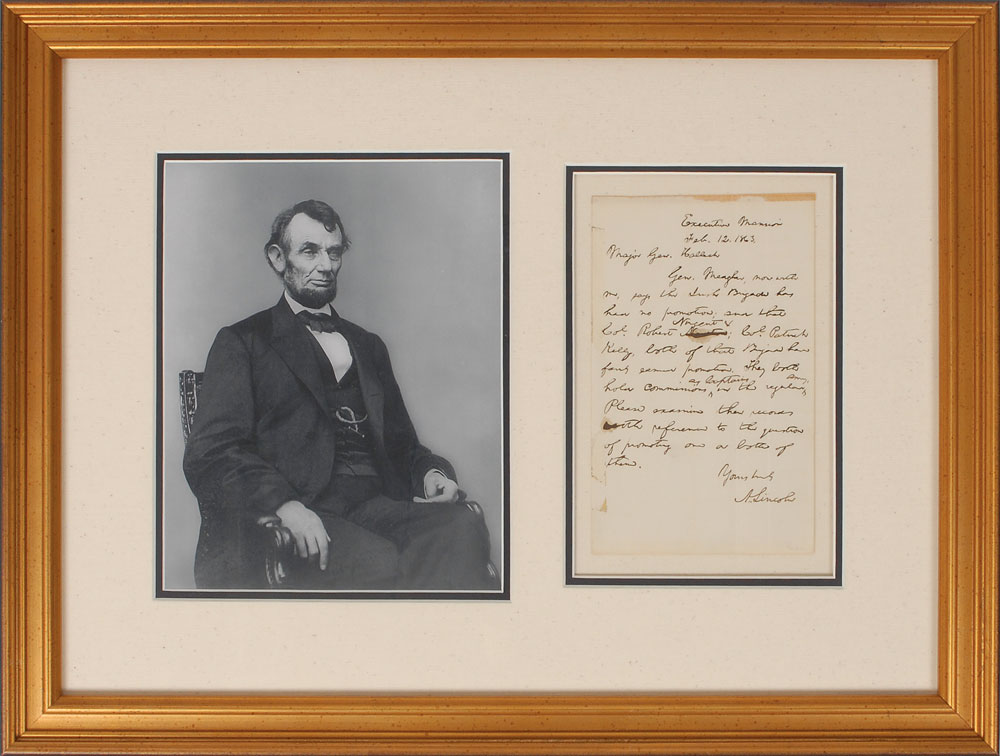 Executive Mansion
Feb. 12. 1863.
Major Gen. Halleck
Gen. Meagher, now with
me, says the Irish Brigade has
had no promotion; and that
Col. Robert Nugent & Col. Patrick
Kelly, both of that Brigade have
fairly earned promotion. They both
hold commissions as Captains in the regular army.
Please examine their records
with reference to the question
of promoting one or both of
them.
Yours truly
A. Lincoln